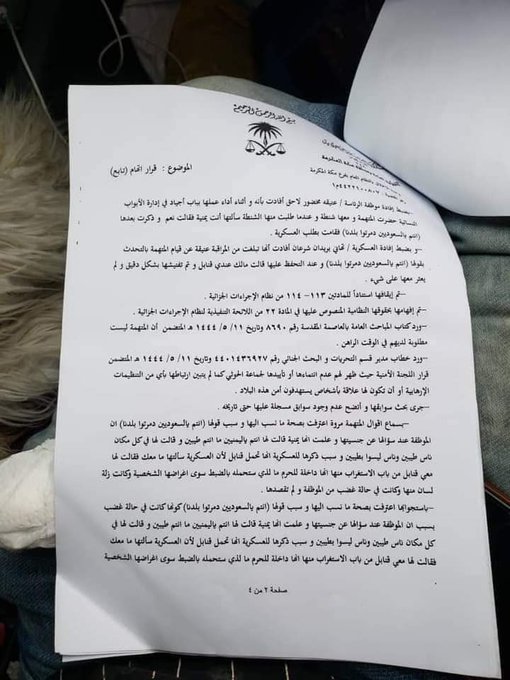 بسم الله الرحمن الرحيم
الموضوع : قرار اتهام (تابع)
بفرع مكة المكرمة
وبضبط إفادة موظفة الرئاسة / عتيقه محضور لاحق أفادت بأنه و أثناء أداء عملها بباب أجياد في إدارة الأبواب
النسائية حضرت المتهمة و معها شنطة و عندما طلبت منها الشنطة سألتها أنت يمنية فقالت نعم و ذكرت بعدها
(انتم يالسعوديين دمرتوا بلدنا) فقامت بطلب العسكرية .
–و بضبط إفادة العسكرية / تهاني بريدان شرعان أفادت أنها تبلغت من المراقبة عتيقة عن قيام المتهمة بالتحدث
بقولها (انتم يالسعوديين دمرتوا بلدنا) و عند التحفظ عليها قالت مالك عندي قنابل و تم تفتيشها بشكل دقيق و لم
يعثر معها على شيء .
–تم إيقافها استناداً للمادتين ١١٣– ١١٤ من نظام الإجراءات الجزائية .
–تم إفهامها بحقوقها النظامية المنصوص عليها في المادة ٢٢ من اللائحة التنفيذية لنظام الإجراءات الجزائية .
–ورد كتاب المباحث العامة بالعاصمة المقدسة رقم ٨٦٩٠ وتاريخ ١١/ ٥/ ١٤٤٤ هـ المتضمن أن المتهمة ليست
مطلوبة لديهم في الوقت الراهن .
–ورد خطاب مدير قسم التحريات و البحث الجنائي رقم ٤٤٠١٤٣٦٩٢٧ وتاريخ ١١/ ٥/ ١٤٤٤ هـ المتضمن
قرار اللجنة الأمنية حيث ظهر لهم عدم انتماءها أو تأييدها لجماعة الحوثي كما لم يتبين ارتباطها بأي من التنظيمات
الإرهابية أو أن تكون لها علاقة بأشخاص يستهدفون أمن هذه البلاد .
–جرى بحث سوابقها و أتضح عدم وجود سوابق مسجلة عليها حتى تاريخه .
–بسماع اقوال المتهمة مروة اعترفت بصحة ما نسب اليها و سبب قولها (انتم بالسعوديين دمرتوا بلدنا) ان
الموظفة عند سؤالها عن جنسيتها و علمت انها يمنية قالت لها انتم باليمنيين ما انتم طيبين و قالت لها في كل مكان
ناس طيبين وناس ليسوا بطيبين و سبب ذكرها للعسكرية انها تحمل قنابل لأن العسكرية سألتها ما معك فقالت لها
معي قنابل من باب الاستغراب منها انها داخلة للحرم ما لذي ستحمله بالضبط سوى اغراضها الشخصية وكانت زلة
لسان منها وكانت في حالة غضب من الموظفة و لم تقصدها .
–باستجوابها اعترفت بصحة ما نسب اليها و سبب قولها (انتم يالسعوديين دمرتوا بلدنا) كونها كانت في حالة غضب
بسبب ان الموظفة عند سؤالها عن جنسيتها و علمت انها يمنية قالت لها انتم باليمنيين ما انتم طيبين و قالت لها في
كل مكان ناس طيبين وناس ليسوا بطيبين و سبب ذكرها للعسكرية انها تحمل قنابل لأن العسكرية سألتها ما معك
فقالت لها معي قنابل من باب الاستغراب منها انها داخلة للحرم ما لذي ستحمله بالضبط سوى اغراضها الشخصية
صفحة ٢ من ٤